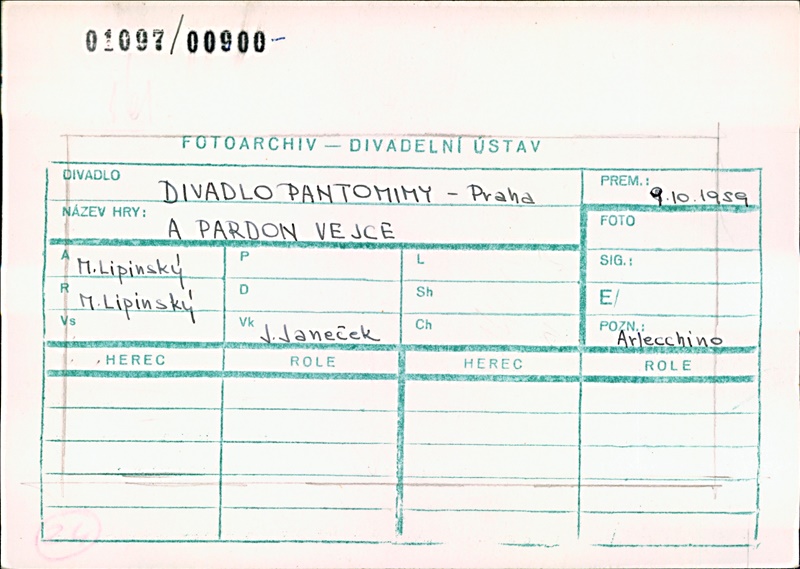 01097/00900-
FOTOARCHIV — DIVADELNÍ ÚSTAV
DIVADLO DIVADLO PANTOMIMY - Praha
PREM.: 9.10.1959
NÁZEV HRY: A PARDON VEJCE
FOTO
A M. Lipinský P L SIG.:
R M. Lipinský D Sh E/
Vs Vk J. Janeček Ch POZN.: Arlecchino
HEREC ROLE HEREC ROLE
26